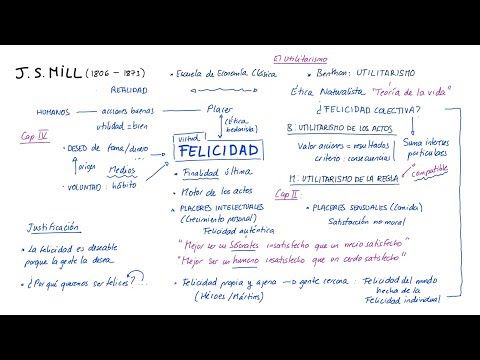 El Utilitarismo
J. S. MiLL (1806 - 1873)
• Escuela de Economía Clásica
• Benthan: UTILITARISMO
REALIDAD
Ética Naturalista "Teoría de la vida"
HUMANOS
acciones buenas
Placer
¿FELICIDAD COLECTIVA?
utilidad = bien
(Ética hedonista)
Cap IV
B: UTILITARISMO DE LOS ACTOS
• DESEO de fama/dinero...
Virtud
FELICIDAD
Valor acciones = resultados
Suma intereses
particulares
criterio: consecuencias
origen
Medios
• Finalidad última
M: UTILITARISMO DE LA REGLA
compatible
• VOLUNTAD: hábito
• Motor de los actos
Cap II
• PLACERES INTELECTUALES
(Crecimiento personal)
• PLACERES SENSUALES (Comida)
Felicidad auténtica
Satisfacción no moral
Justificación
"Mejor ser un Sócrates insatisfecho que un necio satisfecho"
• La felicidad es deseable
porque la gente la desea.
"Mejor ser un humano insatisfecho que un cerdo satisfecho"
• ¿Por qué queremos ser felices?...
• Felicidad propia y ajena → gente cercana :
(Héroes / Mártires)
Felicidad del mundo
hecha de la
Felicidad individual